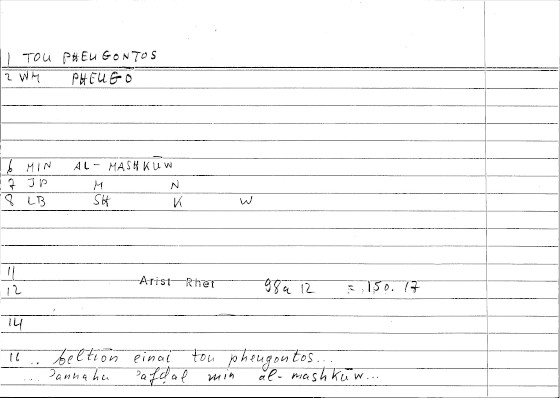 1 TOU PHEUGONTOS
2 WM PHEUGŌ
6 MIN AL-MASHKŪW
7 JP M N
8 LB SH K W
11
12 Arist Rhet 98a 12 = 150.17
14
16 ... beltion einai tou pheugontos...
... ʾannahu ʾafḍal min al-mashkūw...